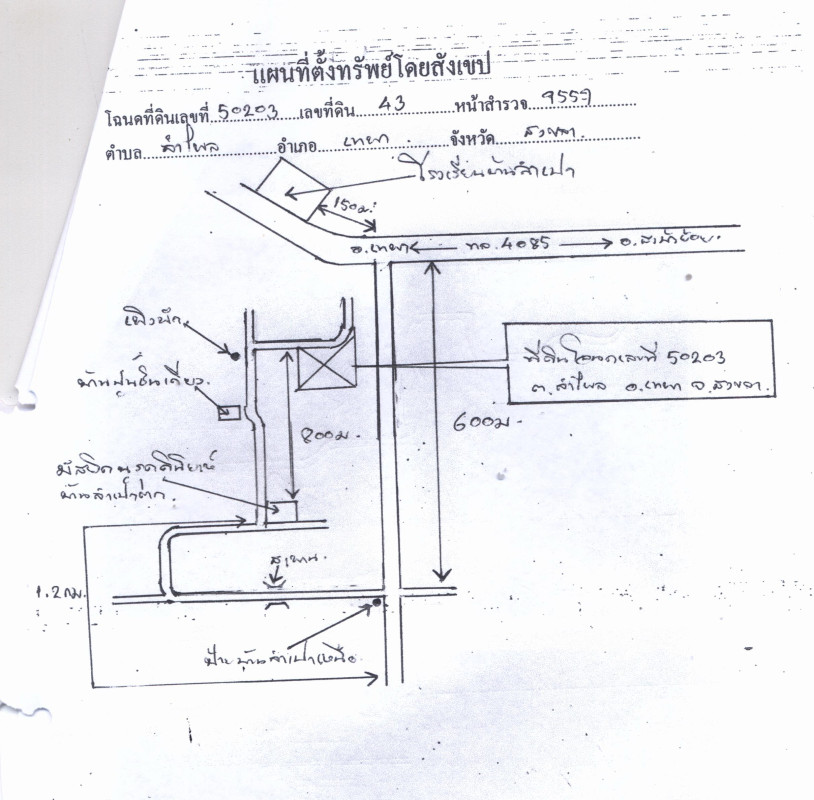 แผนที่ตั้งทรัพย์โดยสังเขป
โฉนดที่ดินเลขที่ 50203 เลขที่ดิน 43 หน้าสำรวจ 9557
ตำบล ลำไพล อำเภอ เทพา จังหวัด สงขลา
โรงเรียนบ้านลำเปา
150ม.
อ.เทพา ทล.4085 อ.สะบ้าย้อย
เพิงพัก
บ้านปูนชั้นเดียว
ที่ดินโฉนดเลขที่ 50203
ต.ลำไพล อ.เทพา จ.สงขลา
800ม.
600ม.
มัสยิด
บ้านลำเปา
สะพาน
1.2กม.
ป้ายบ้านลำเปาเหนือ